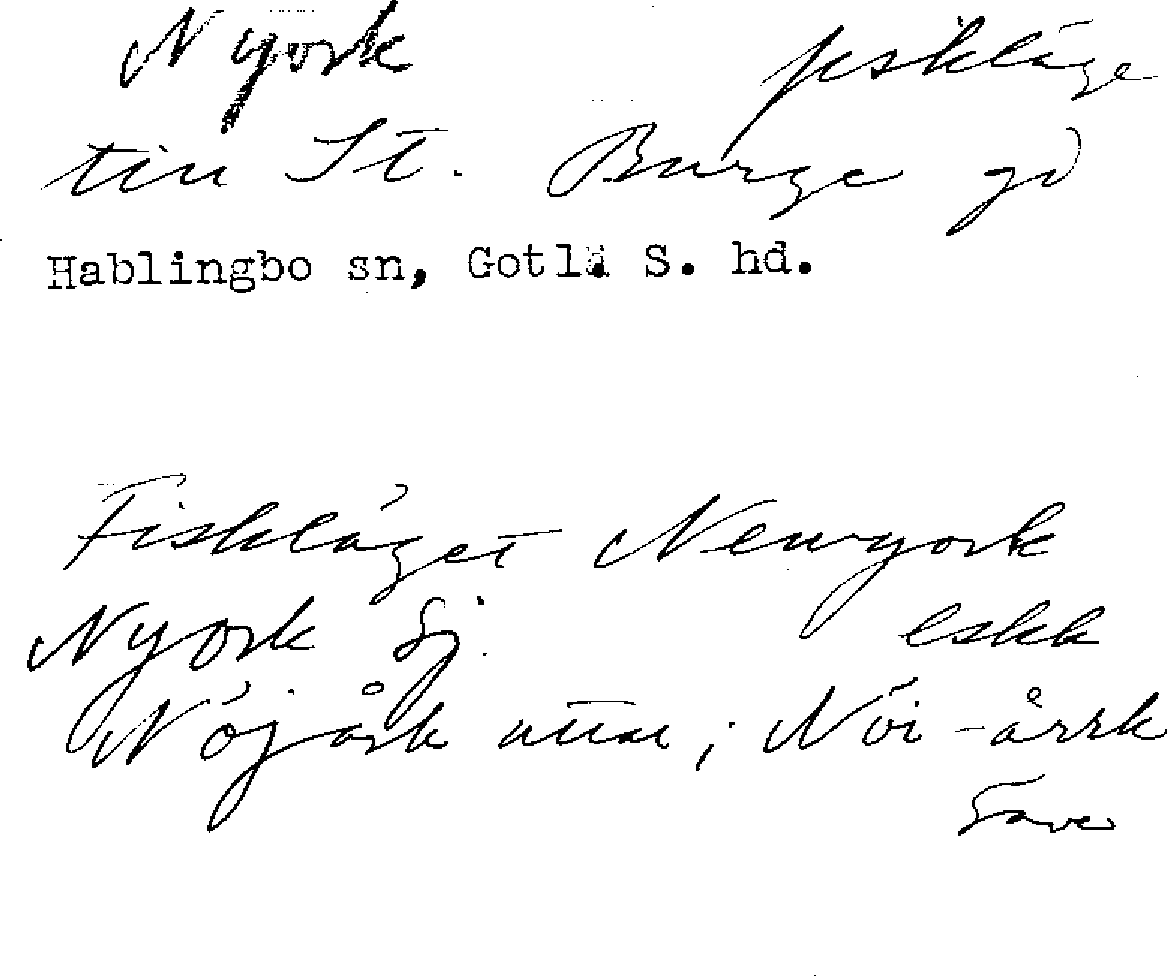 Nyork fiskläge
till St. Burge gd
Hablingbo sn, Gotl. S. hd.
Fiskläget Newyork
Nyork Sj. eskk
Nöjårk uttal; Nöi-årrk